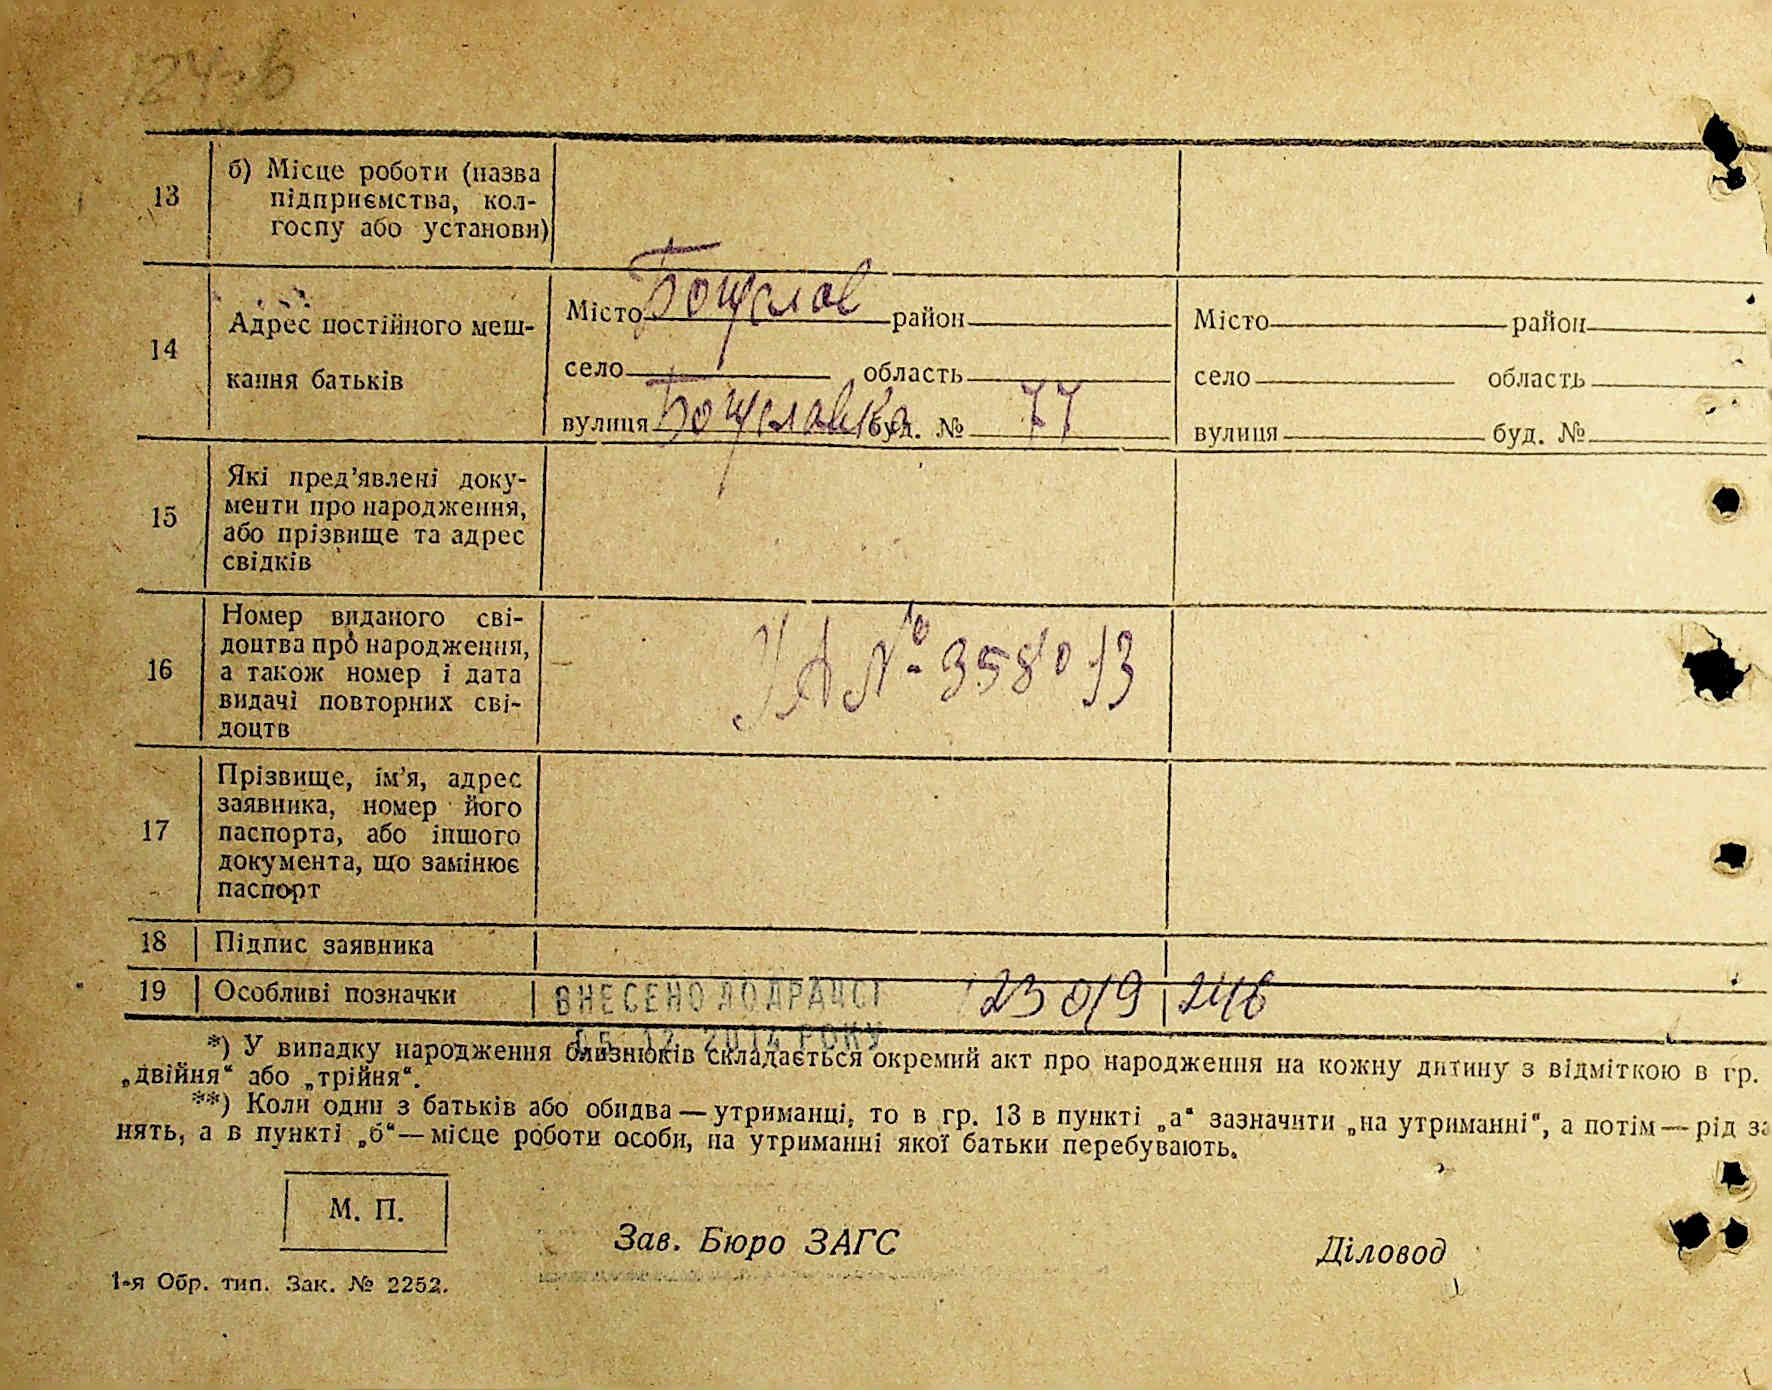 124зв
13 б) Місце роботи (назва
підприємства, кол-
госпу або установи)
14 Адрес постійного меш-
кання батьків
Місто Богуслав район
село область
вулиця Богуславка буд. № 77
Місто район
село область
вулиця буд. №
15 Які пред’явлені доку-
менти про народження,
або прізвище та адрес
свідків
16 Номер виданого сві-
доцтва про народження,
а також номер і дата
видачі повторних сві-
доцтв
УА № 358013
17 Прізвище, ім’я, адрес
заявника, номер його
паспорта, або іншого
документа, що замінює
паспорт
18 Підпис заявника
19 Особливі позначки
ВНЕСЕНО ДО ДРАЦСГ
12. 2014 РОКУ
23019 246
*) У випадку народження близнюків складається окремий акт про народження на кожну дитину з відміткою в гр.
„двійня“ або „трійня“.
**) Коли один з батьків або обидва — утриманці, то в гр. 13 в пункті „а“ зазначити „на утриманні“, а потім — рід за
нять, а в пункті „б“ — місце роботи особи, на утриманні якої батьки перебувають.
М. П.
Зав. Бюро ЗАГС
Діловод
1-я Обр. тип. Зак. № 2252.